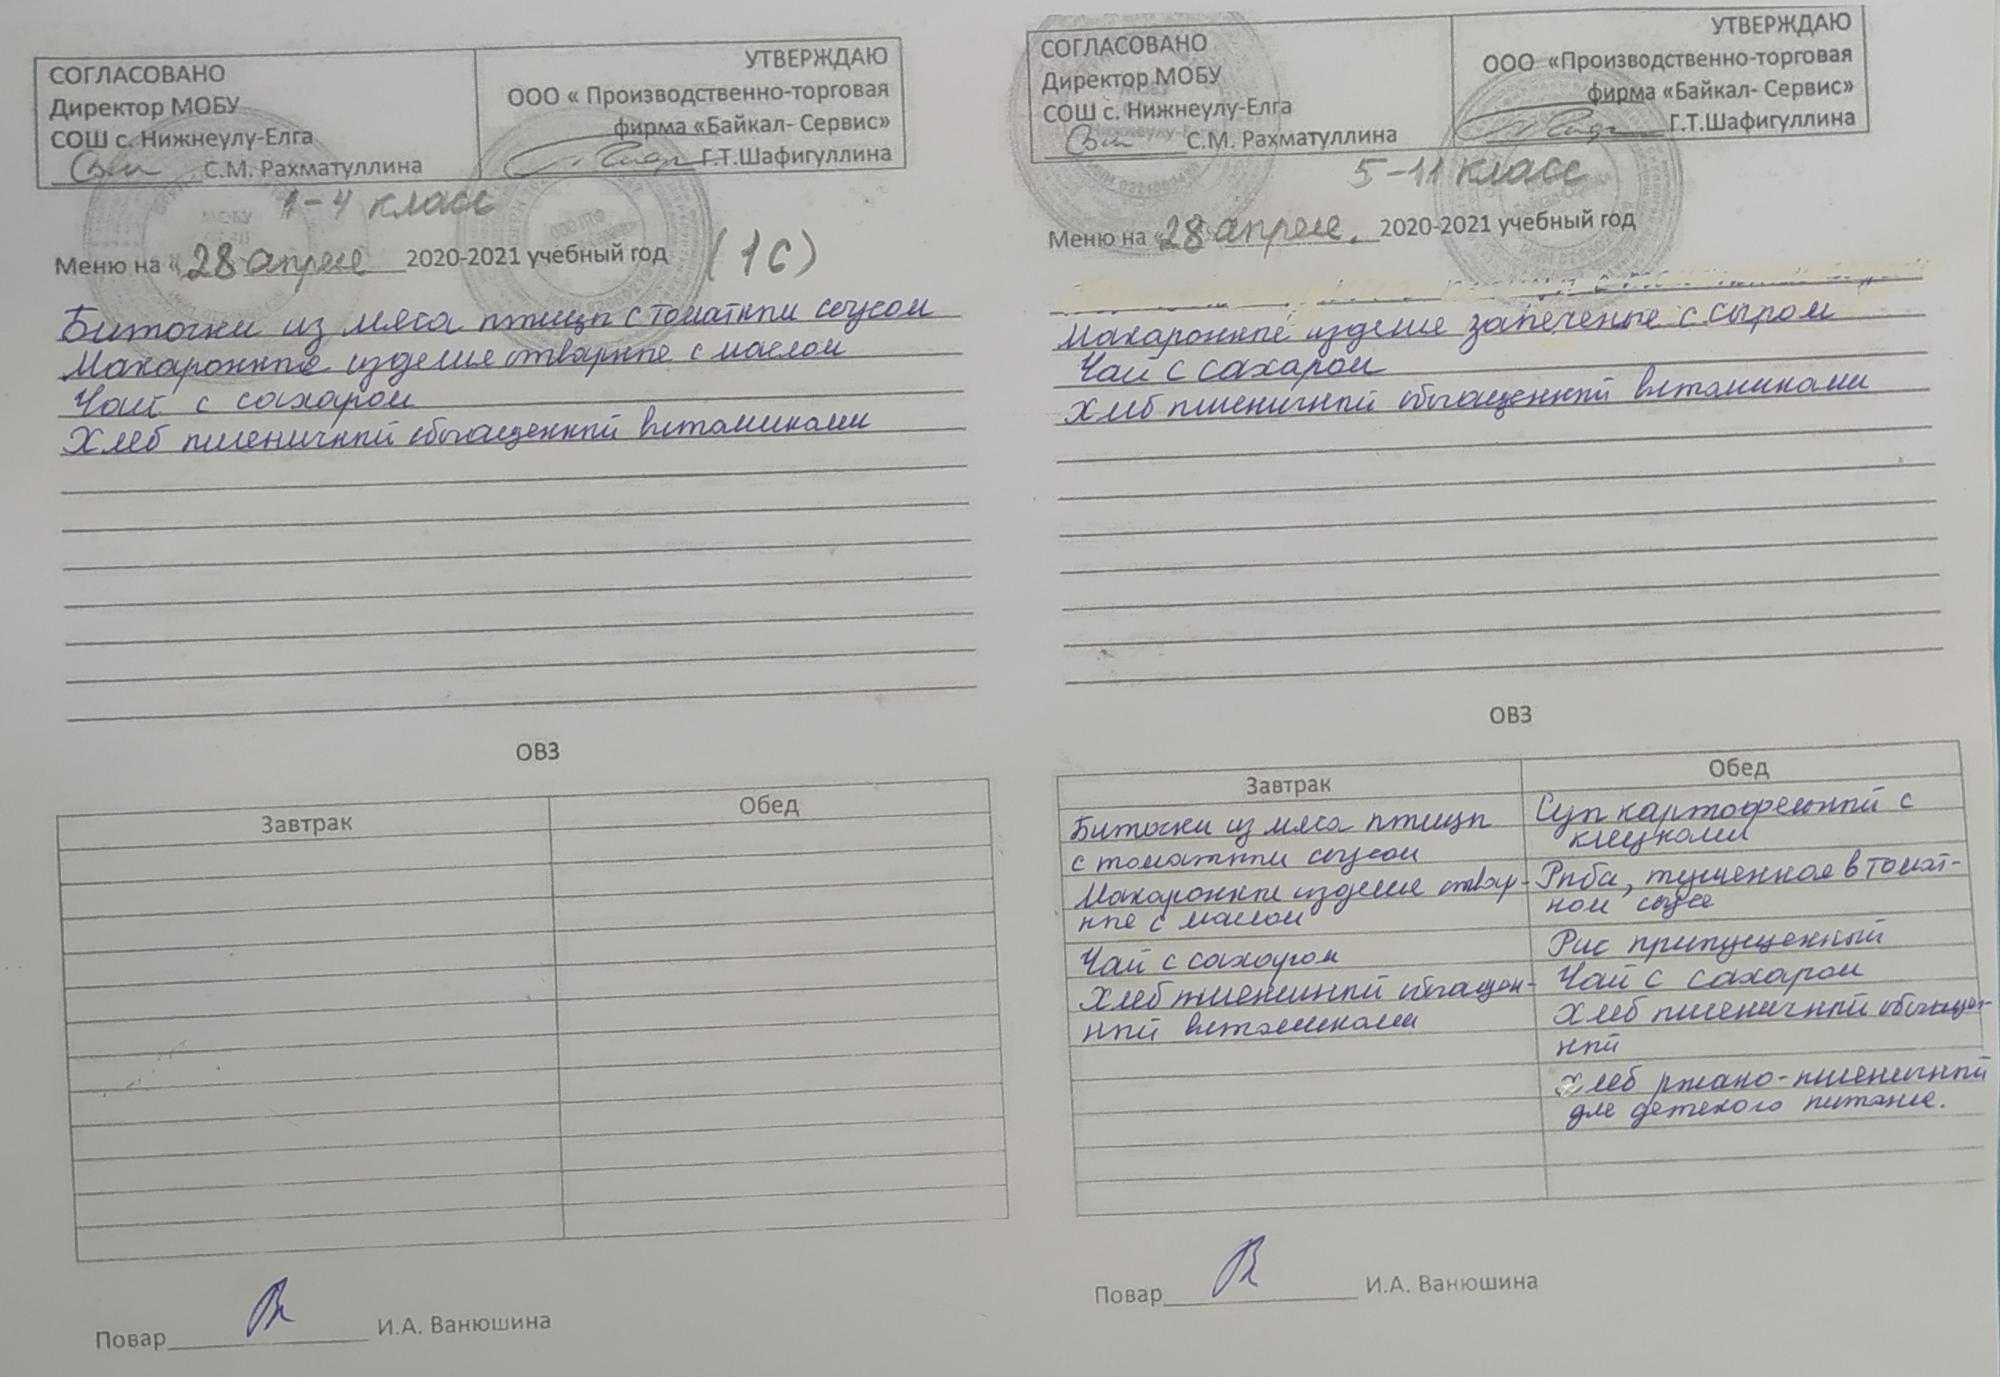 СОГЛАСОВАНО
Директор МОБУ
СОШ с. Нижнеулу-Елга
С.М. Рахматуллина
УТВЕРЖДАЮ
ООО « Производственно-торговая
фирма «Байкал- Сервис»
Г.Т.Шафигуллина
1-4 класс
Меню на « 28 апреле 2020-2021 учебный год (1С)
Биточки из мяса птицы с томатным соусом
Макаронные изделия отварные с маслом
Чай с сахаром
Хлеб пшеничный обогащенный витаминами
ОВЗ
Завтрак Обед
Повар И.А. Ванюшина
СОГЛАСОВАНО
Директор МОБУ
СОШ с. Нижнеулу-Елга
С.М. Рахматуллина
УТВЕРЖДАЮ
ООО «Производственно-торговая
фирма «Байкал- Сервис»
Г.Т.Шафигуллина
5-11 класс
Меню на « 28 апреле. 2020-2021 учебный год
Макаронные изделие запеченые с сыром
Чай с сахаром
Хлеб пшеничный обогащенный витаминами
ОВЗ
Завтрак
Биточки из мяса птицы
с томатным соусом
Макаронные изделие отвар-
ные с маслом
Чай с сахаром
Хлеб пшеничный обогащен-
ный витаминами
Обед
Суп картофельный с
клецками
Рыба, тушенная в томат-
ном соусе
Рис припущенный
Чай с сахаром
Хлеб пшеничный обогащен-
ный
Хлеб ржано-пшеничный
для детского питание.
Повар И.А. Ванюшина